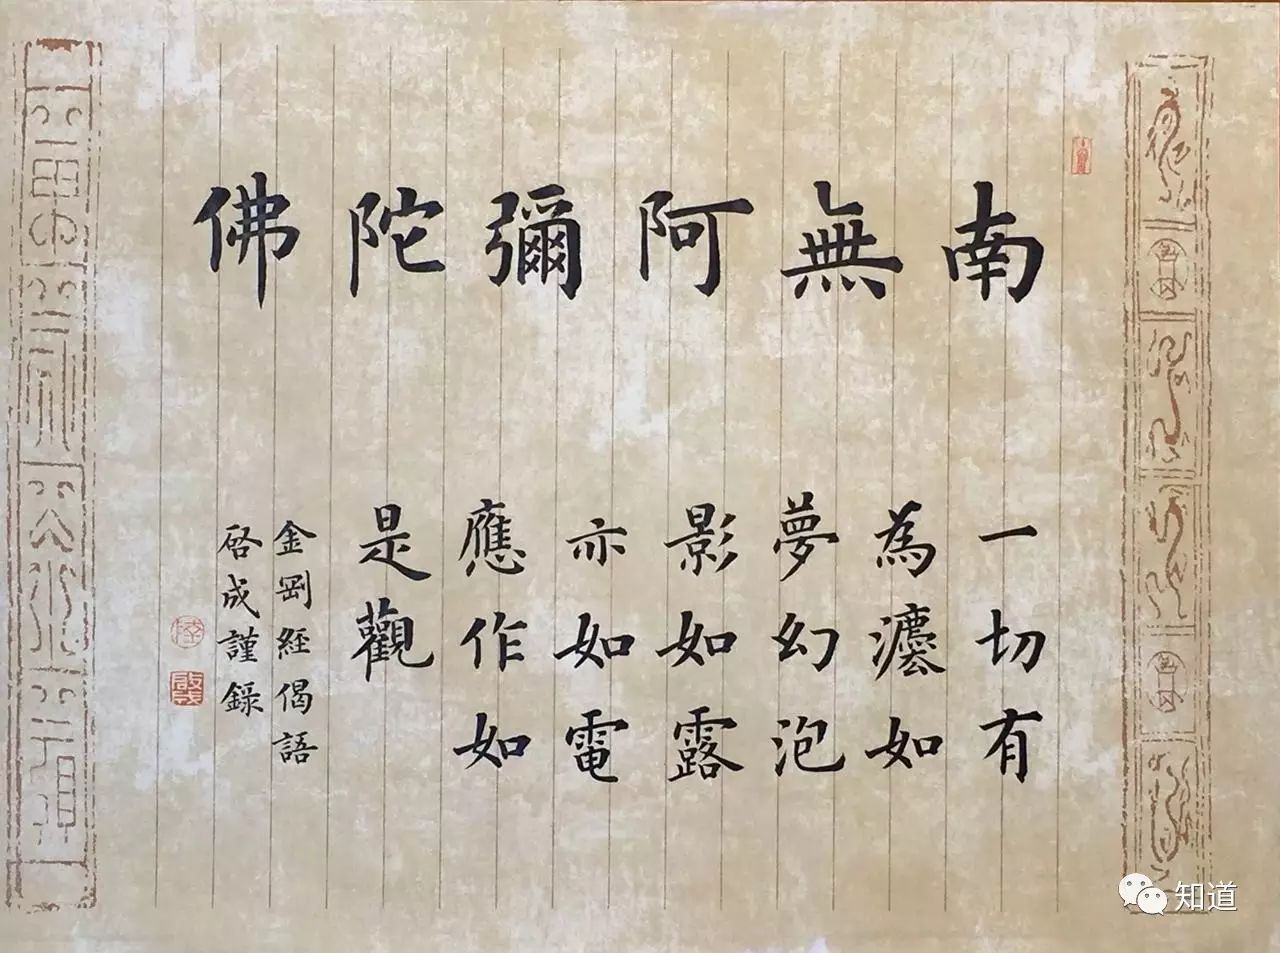 南無阿彌陀佛
一切有
為灋如
夢幻泡
影如露
亦如電
應作如
是觀
金剛経偈語
启成謹錄
知道